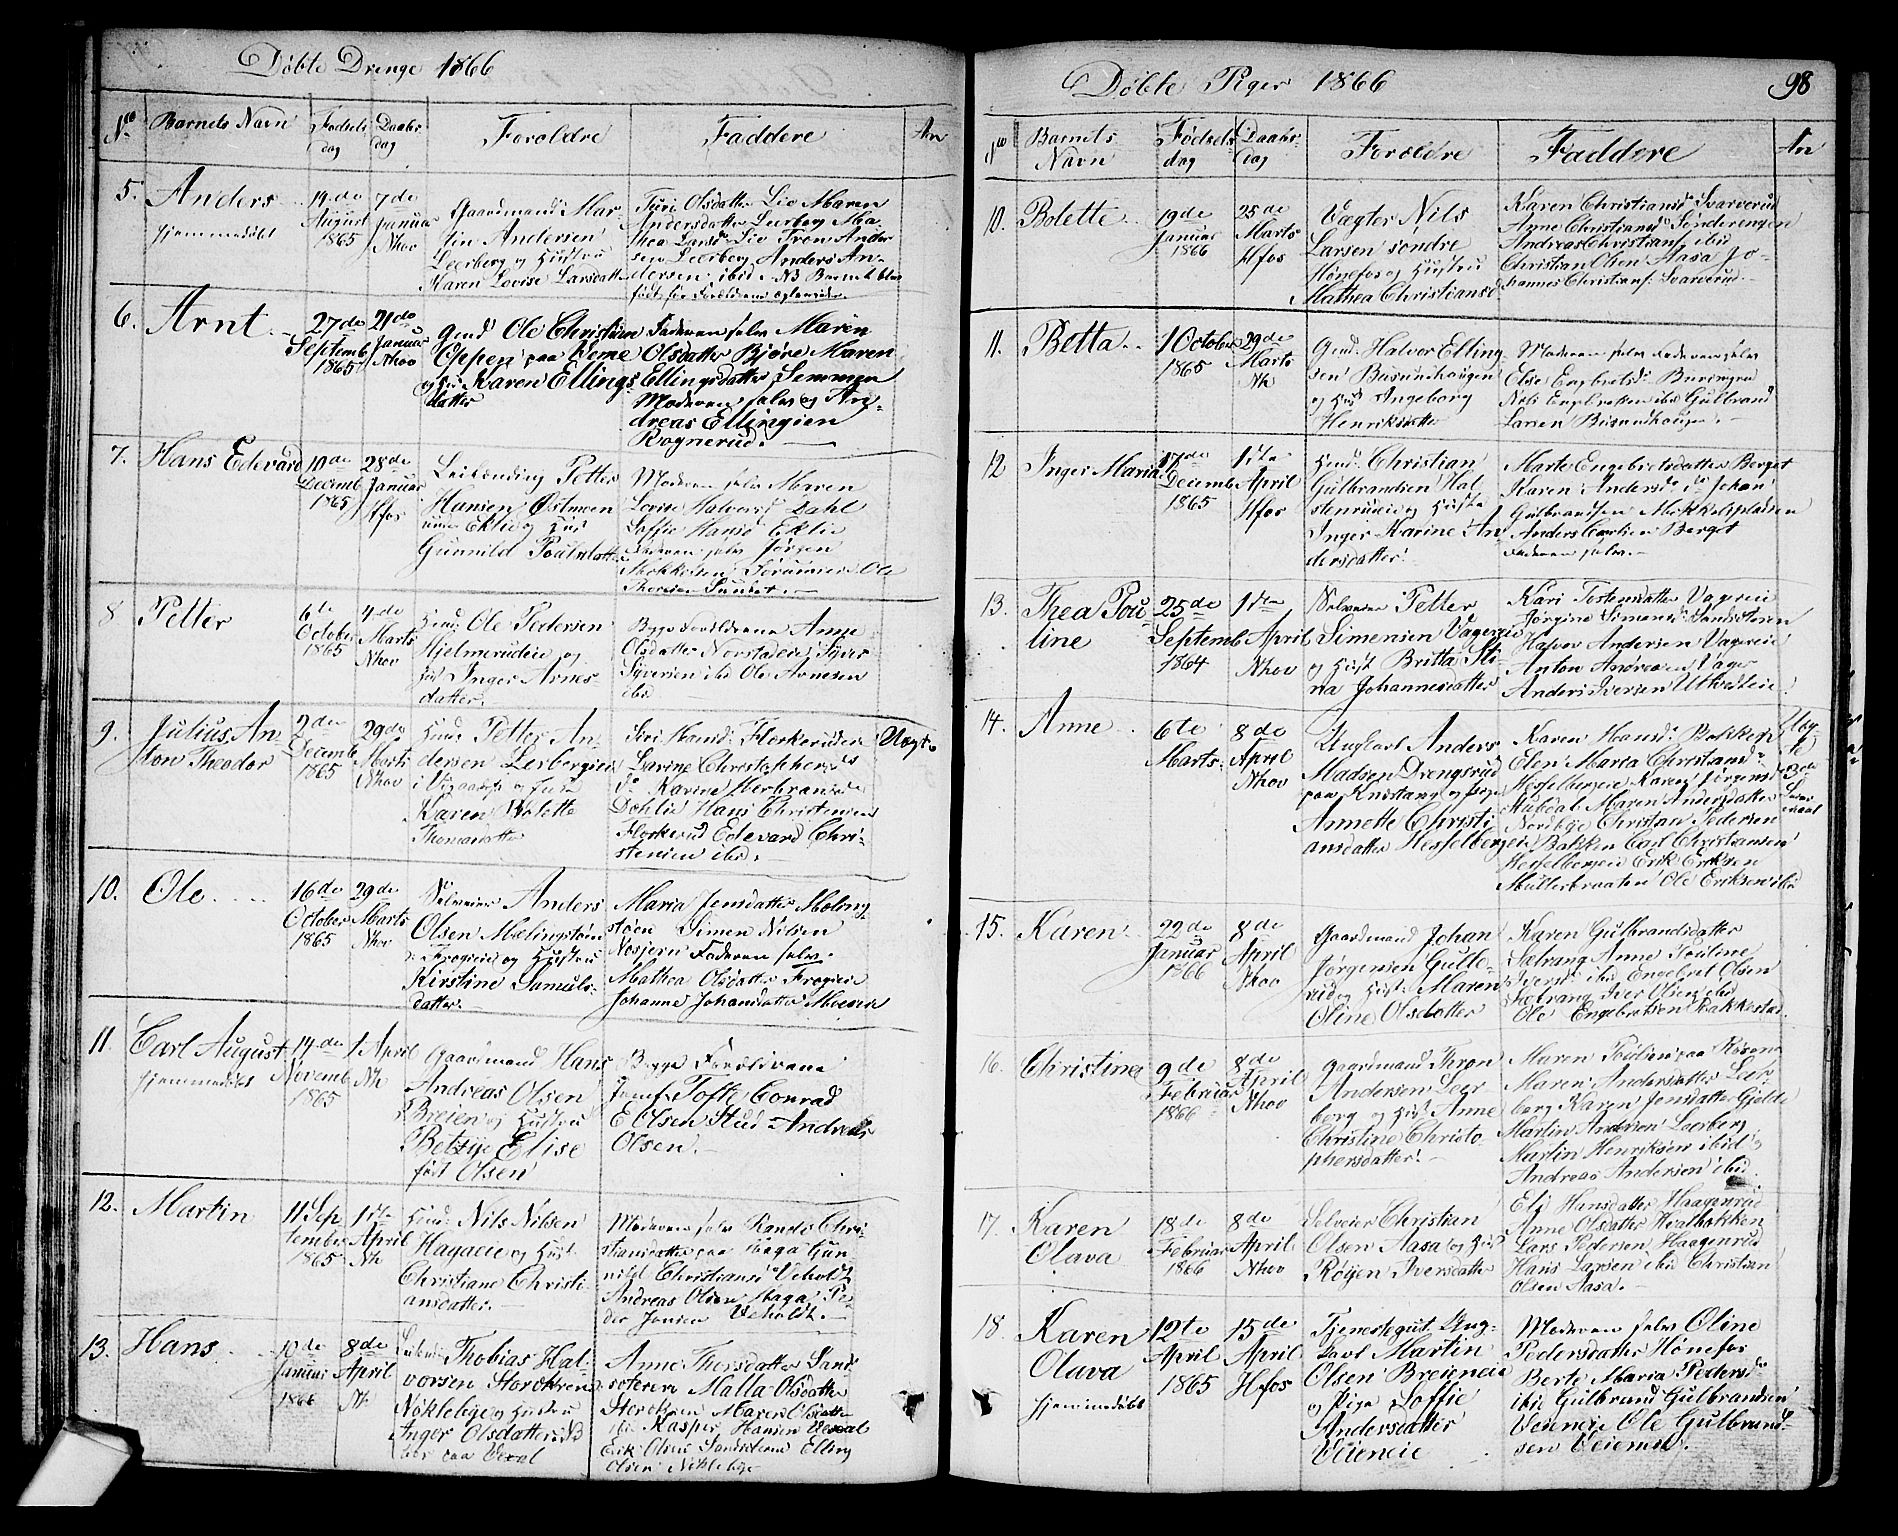 Döbte Drenge 1866
No Barnets Navn Födsels dag Daabs dag Foroldre Faddere An
5. Anders hjemmedöbt
19de August 1865
7de Januar Nhov
Gaardmand Mar-
tin Andersen
Leerberg og Hustru
Karen Lovise Larsdatter
Turi Olsdatter Lie Maren
Andersdatter Leerberg Ma-
thea Larsd Lie Tron Ander
sen Leerberg Anders An-
dersen ibid. NB Barnet blev
födt för Foreldrenes
6. Arnt
27de Septemb 1865
21de Januar Nhov
Gmd Ole Christian
Oppen paa Veme
og H. Karen Ellings-
datter
Faderen selv Maren
Olsdatter Björe Maren
Ellingsdatter Semmen
Moderen selv og An-
dreas Ellingsen
Rognerud.
7. Hans Edevard
10de Decemb 1865
28de Januar Hfos
Leilending Petter
Hansen Östmoen
under Eklie og Hust
Gunnild Poulsdatter
Moderen selv Maren
Lovise Halvorsd Dahl
Soffie Hansd Eklie
Faderen selv Jörgen
Ole
Thoresen
8 Petter
6te October 1865
4de Marts Nhov
Huusd Ole Pedersen
Hjelmerudeie og
Hst Inger Arnes-
datter.
Begge Foreldrene Anne
Olsdatter Syver
Syversen ibid Ole Arnesen
ibid
9. Julius An-
ton Theodor
2den Decemb 1865
29de Marts Nhov
Huusd Petter An-
dersen Lerbergeie
Karen Bolette
Thomasdatter
Siri Hansd Flaskerudeie
Larine Christophersd
do Karine Herbransd
Dahlie Hans Christensen
Flaskerud Edevard Chri-
stensen ibid.
Uægte
10. Ole
16de October 1865
29de Marts Nhov
Selveier Anders
Olsen Mælingstöen
Frogeie og Hustru
Kirstine Samuels-
datter.
Maria Jensdatter Moling-
stöen Simen Nilsen
Faderen selv.
Mathea Olsdatter Frogeie
Johanne Johansdatter Moeseie
11. Carl August hjemmedöbt
14de Novemb 1865
1 April Nh
Gaardmand Hans
Andreas Olsen
Breien og Hustru
Betsye Elise
födt Olsen
Begge Foreldrene
Jomfr Tofte Conrad
E Olsen Hud Andreas
Olsen.
12. Martin
11 Sep
tember 1865
1ste April Nh
Huusd Nils Nilsen
Hagaeie og Hust
Christiane Christi-
ansdatter.
Moderen selv Randi Chri-
stiansdatter paa Haga Gun
nild Christiansd Veholdt
Andreas Olsen Haga Pe-
der Jonsen Veholdt.
13. Hans
10de Januar 1866
8de April Nh
Thobias Hal-
vorsen Storökren
Nöklebye og Hustru
Anger Olsdatter
boer paa Vexal
Anne Thorsdatter Sand
Malla Olsdatter
Storökren Maren Olsdatter
ibd Kasper Hansen Vexal
Erik Olsen Elling
Olsen Nöklebye
Döbte Piger 1866 98
No Barnets Navn Födsels dag Daabs dag Foroldre Faddere An
10. Bolette
19de Januar 1866
25de Marts Hfos
Vægter Nils
Larsen söndre
Hönefos og Hustru
Mathea Christiansd
Karen Christiansd Svarverud
Anne Christiansd Sönderengen
Andreas Christians. ibid
Christian Olsen Aasa Jo-
hannes Christians. Svarverud.
11. Betta
1 October 1865
29de Marts Nh
Gmd. Halvor Elling
sen Busundhaugen
og Hust Ingeborg
Henriksdatter
Moderen selv Faderen selv
Elise Engbretsd Buringrud
Nils Engbretsen ibid Gulbrand
Larsen Busundhaugen.
12 Inger Maria
17de Decemb 1865
1ste April Hfos
Huusd Christian
Gulbrandsen Hal
stenrudeie og Hustru
Inger Karine An
dersdatter.
Marte Engebretsdatter Berget
Karen Andersd do Johan
Gulbrandsen Mokkelspladsen
Anders Carlsen Berget
Faderen selv.
13. Thea Pou
line
25de Septemb 1864
1ste April Nhov
Selveier Petter
Simensen Vagereie
og Hust Britta Sti-
na Johannesdatter
Kari Tostensdatter Vagreie
Jörgine Simensd Sandstoren
Halvor Andersen Vagereie
Anton Andreasen Vager
Anders Iversen Utvedteie
14. Anne
6te Marts
8de April Nhov
Ungkarl Anders
Madsen Drengsrud
paa Knestang og Pige
Annette Christi
ansdatter Hesselbergeie
Karen Hansd Bakken
Elen Maria Christiansd
Hesselbergeie Karen Jörgensd
Stubdal Maren Andersdatter
Nordbye Christian Pedersen
Bakken Carl Christiansen
Hesselbergeie Erik Eriksen
Mullerbraaten Ole Eriksen ibid
Uæg-
te
3de
15. Karen
22de Januar 1866
8de April Nhov
Gaardmand Johan
Jörgensen Gulle-
rud og Hust. Maren
Oline Olsdatter
Karen Gulbrandsdatter
Sætrang Anne Pouline
Iversd ibid Engebret Olsen
Sætrang Iver Olsen ibid
Ole Engebretsen Bakkestad
16. Christine
9de Februar 1866
8de April Nhov
Gaardmand Thron
Andersen Leer
berg og Hust Anne
Christine Christo
phersdatter.
Maren Poulsen paa Rösene
Maren Andersdatter Leer-
berg Karen Jonsdatter Gjelde
Martin Andersen Leerberg
Martin Henriksen ibid
Andreas Andersen ibid
17. Karen
Olava
18de Februar 1866
8de April Nhov
Selveier Christian
Olsen Aasa og Hust
Röijen Iversdatter
Eli Hansdatter Haagenrud
Anne Olsdatter Hvalbakken
Lars Pedersen Haagenrud
Hans Larsen ibid Christian
Olsen Aasa.
18. Karen
Olava
hjemmedöbt
12te April 1865
15de April Hfos
Tjenestegut Ung-
karl Martin
Olsen Breieneie
og Pige Soffie
Andersdatter
Veieneie
Moderen selv Oline
Pedersdatter Hönefos
Berte Maria Pedersd
ibid Gulbrand Gulbrandsen
Veieneie Ole Gulbrand-
sen Veieneie.